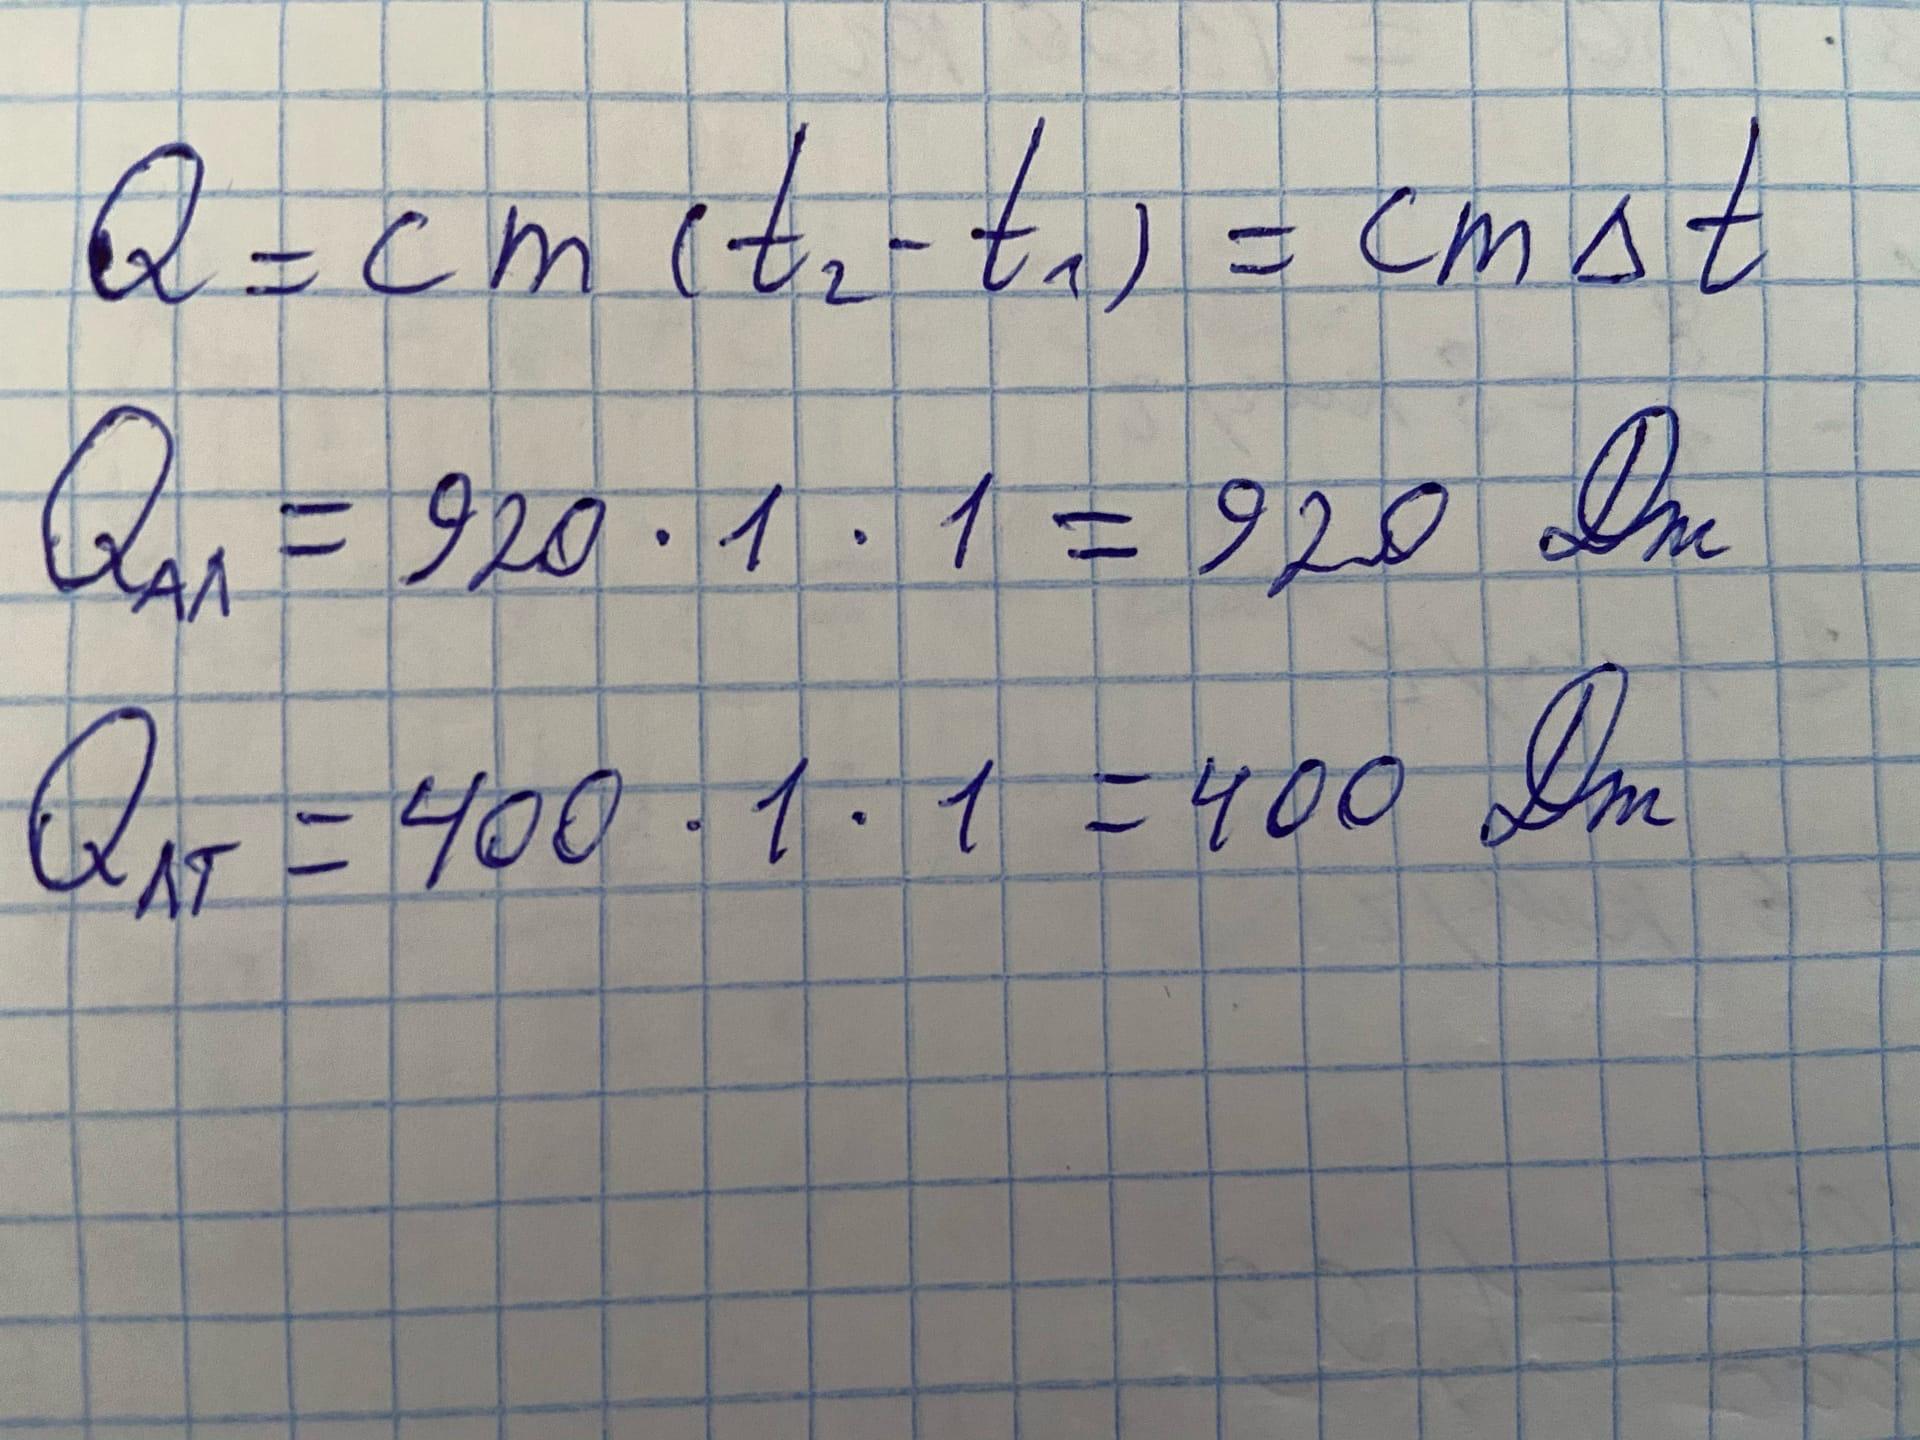 Q = cm (t₂ - t₁) = cm Δt
Qал = 920 · 1 · 1 = 920 Дж
Qлт = 400 · 1 · 1 = 400 Дж